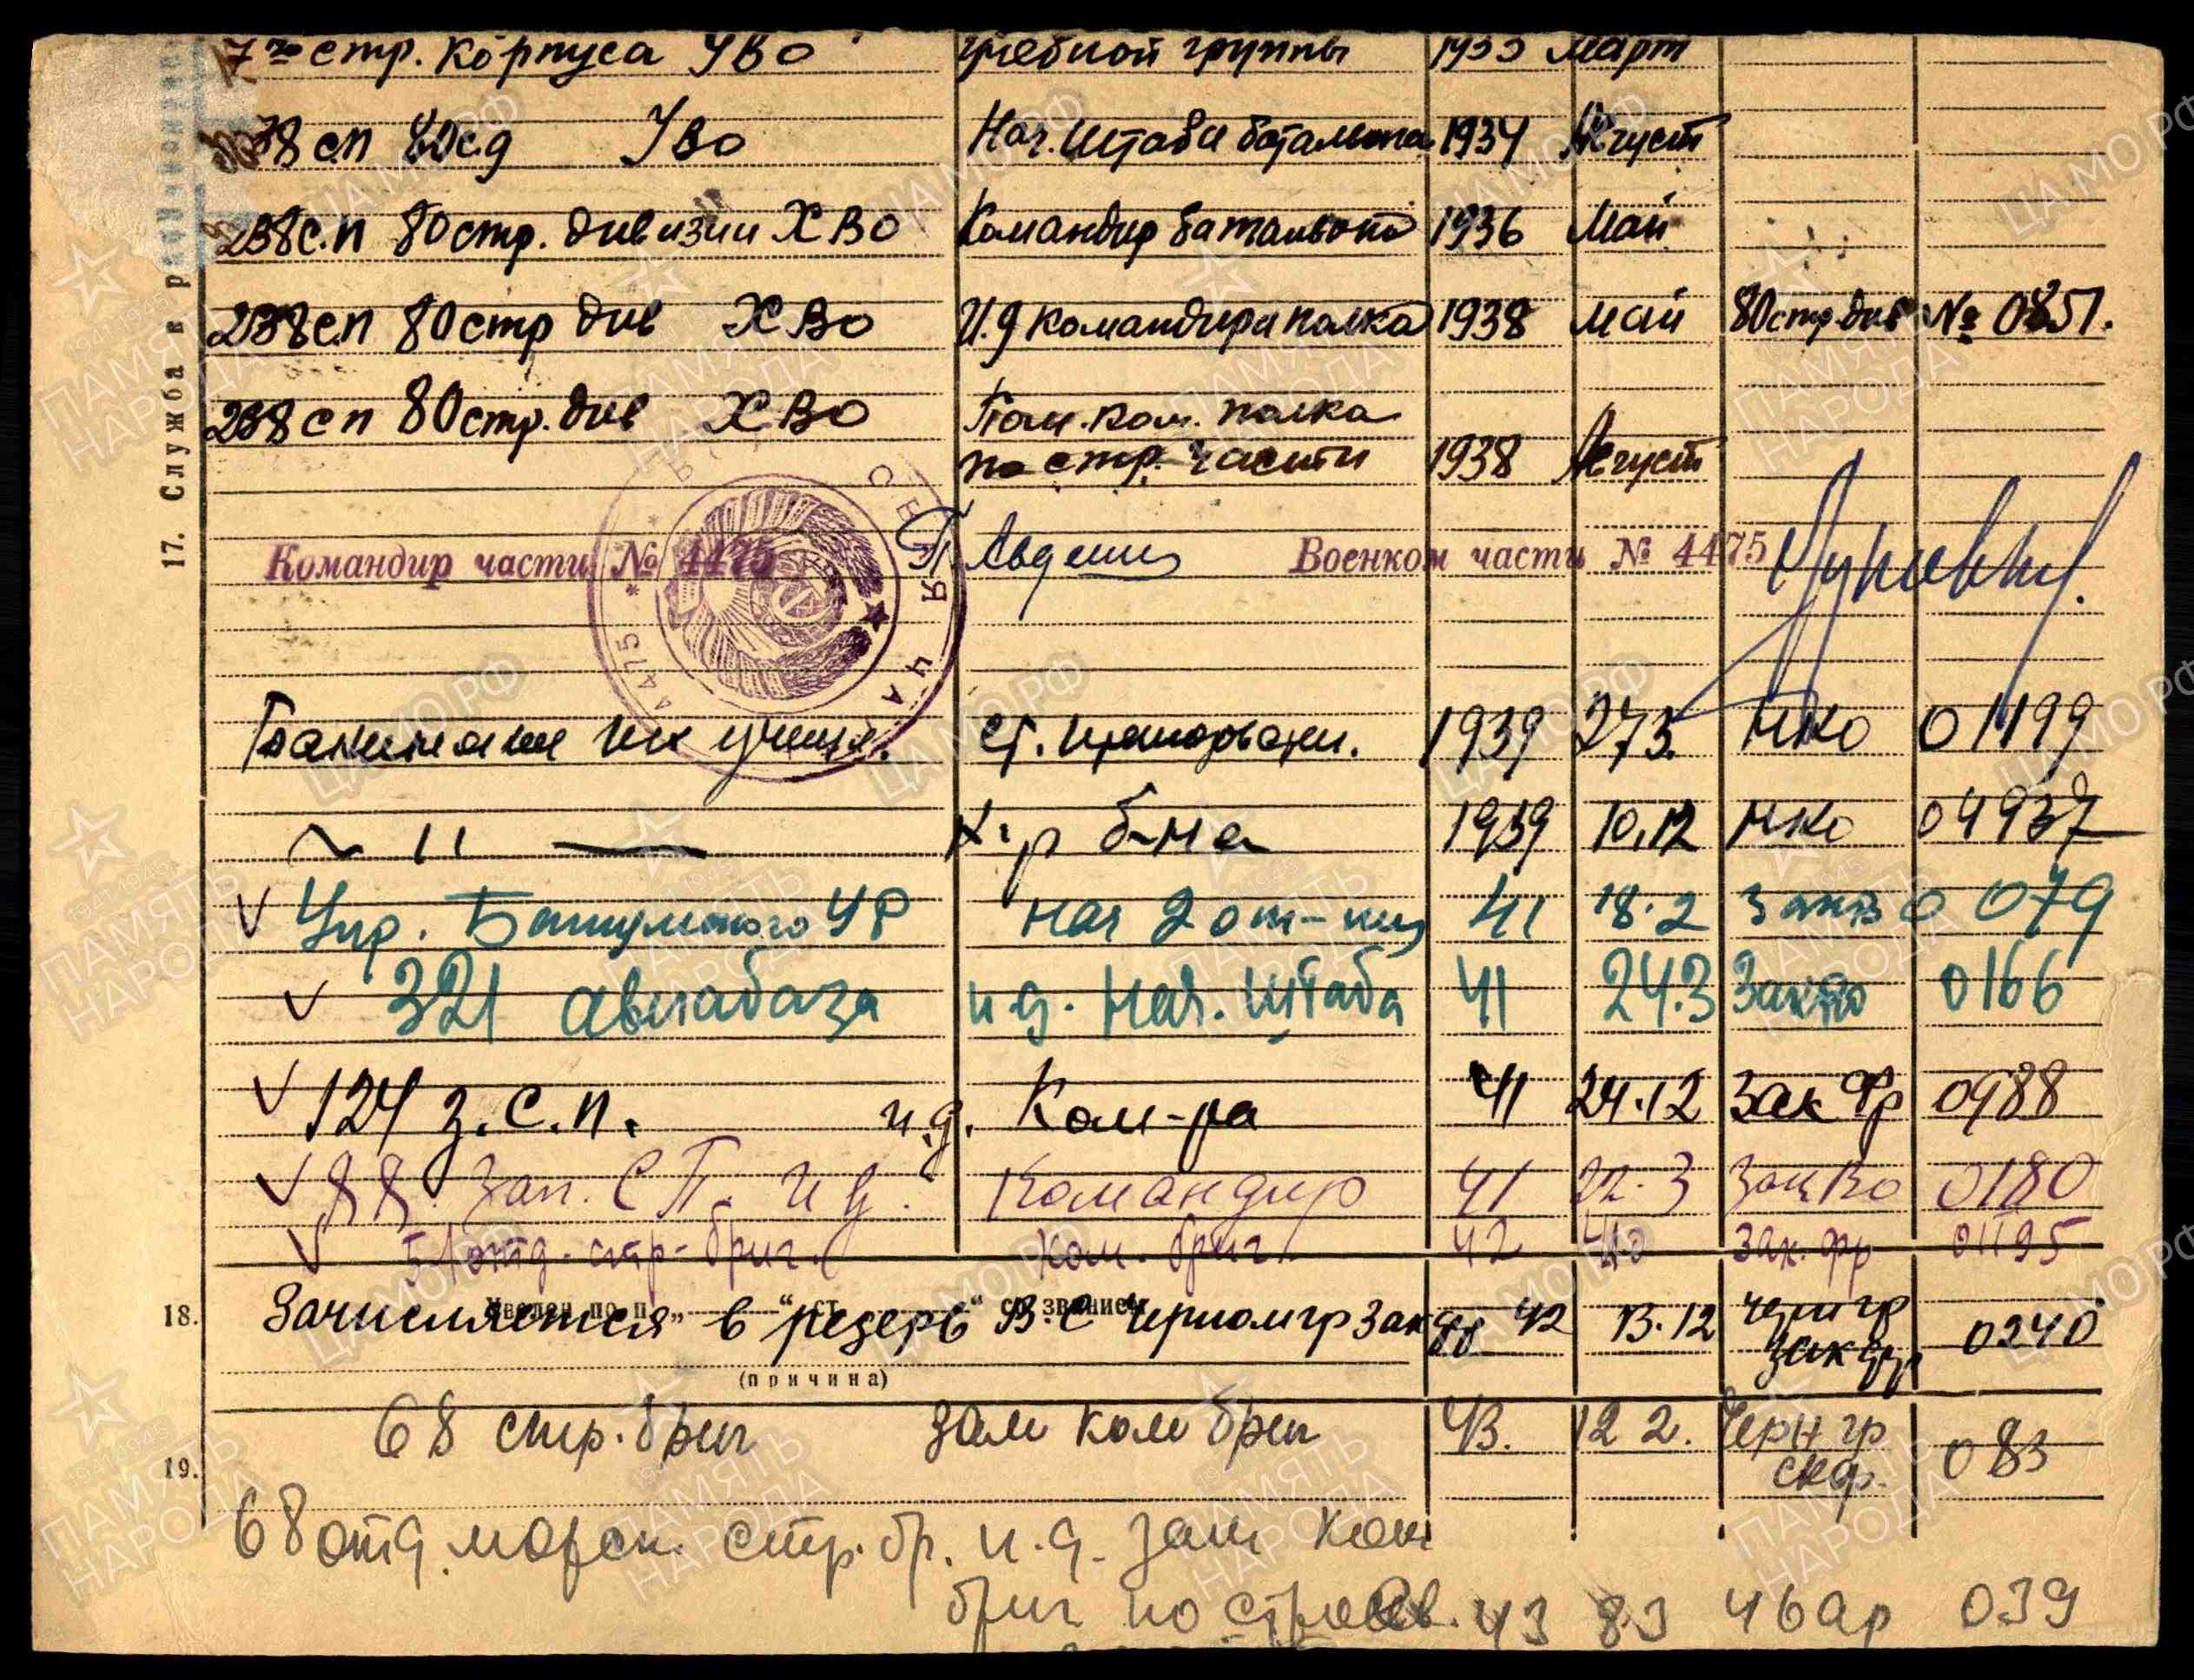 7го стр. корпуса УВО учебной группы 1933 Март
238 сп 80 сд УВО Нач. Штаба батальона 1934 Август
238 с.п 80 стр. дивизии ХВО Командир батальона 1936 Май
238 с.п 80 стр див ХВО И.д командира полка 1938 май 80 стр. див № 0851.
238 с п 80 стр. див ХВО Пом. ком. полка
по стр. части 1938 Август
17. Служба в
Командир части № 4475 Авдеенко Военком части № 4475
4475 * ВОЙСКОВАЯ ЧАСТЬ *
Бакинское пех училищ. ст. преподават. 1939 27.3. НКО 01199
~ " — к-р б-на 1939 10.12 НКО 04937
√ Упр. Батумского УР Нач 2 от-ния 41 18.2 ЗакВО 079
√ 321 авиабаза и д. Нач. Штаба 41 24.3 ЗакВО 0166
√ 124 з.с.п. и.д. Ком-ра 41 24.12 Зак Фр 0988
√ 88 Зап. СП. и д. Командир 41 22.3 ЗакВО 0180
√ 51 отд. стр-бриг. Ком. бриг. 42 Зак. фр 01195
18. Зачисляется в резерв В.С Черноморгр Зак фр 42 13.12 Черн гр Зак фр 0240
(причина)
68 стр. бриг зам ком бриг 43. 12 2. Черн гр скф. 083
19.
68 отд. морск. стр. бр. и.д. зам ком
бриг по строев. 43 8.3 46 ар 039